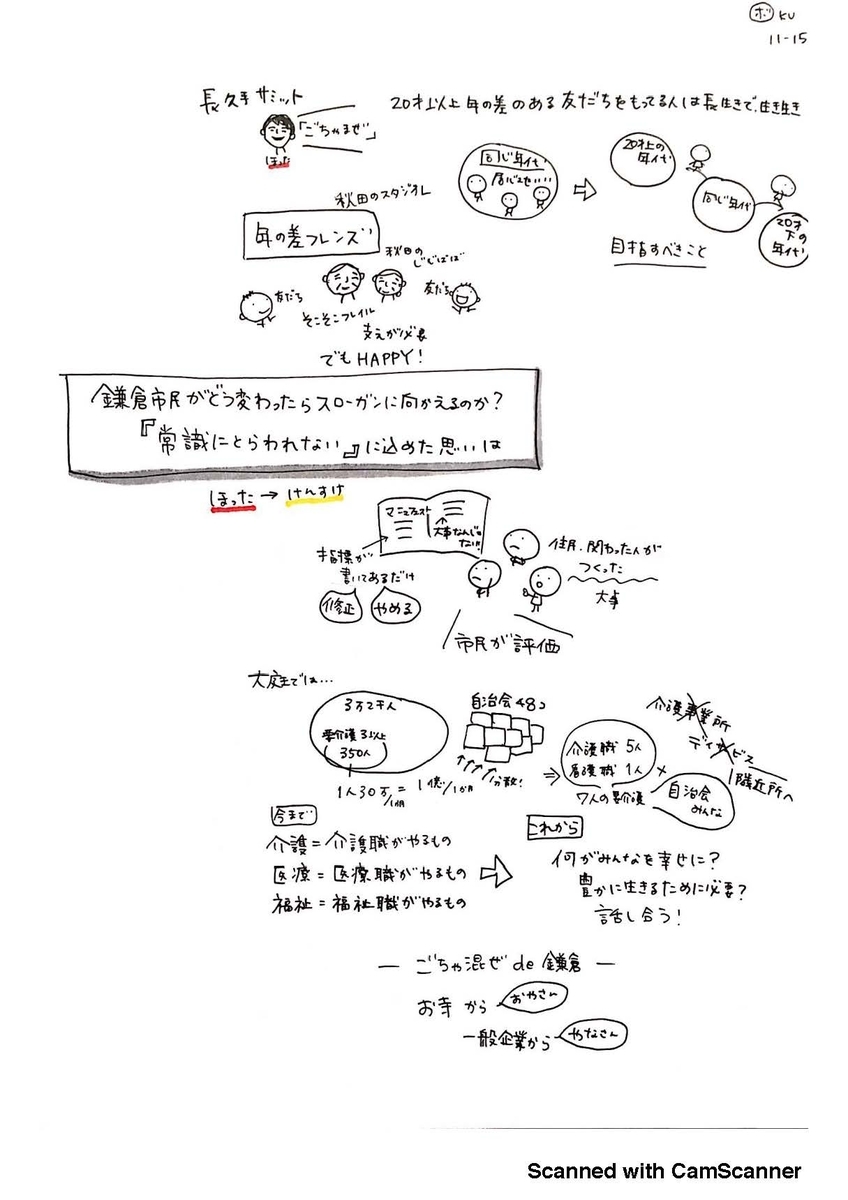 ボ KU
11-15
長久手サミット
「ごちゃまぜ」
ほった
20才以上年の差のある友だちをもってる人は長生きで、生き生き
同じ年代
居心地いい
20才上の
年代
同じ年代
20才
下の
年代
目指すべきこと
秋田のスタジオレ
年の差フレンズ
秋田の
じじばば
友だち
友だち
そこそこフレイル
支えが必要
でもHAPPY!
鎌倉市民がどう変わったらスローガンに向かえるのか?
『常識にとらわれない』に込めた思いは
ほった → けんすけ
マニフェスト
大事なんじゃ
ない!!
指標が
書いてあるだけ
修正
やめる
住民、関わった人が
つくった
大事
市民が評価
大庭では…
3万2千人
要介護3以上
350人
1人30万/1ヶ月 = 1億/1ヶ月
自治会48コ
分散!
介護職 5人
看護職 1人
7人の要介護
+
自治会
みんな
介護事業所
デイサービス
隣近所へ
今まで
介護=介護職がやるもの
医療=医療職がやるもの
福祉=福祉職がやるもの
これから
何がみんなを幸せに?
豊かに生きるために必要?
話し合う!
— ごちゃ混ぜ de 鎌倉 —
お寺から おやさん
一般企業から やなさん
Scanned with CamScanner